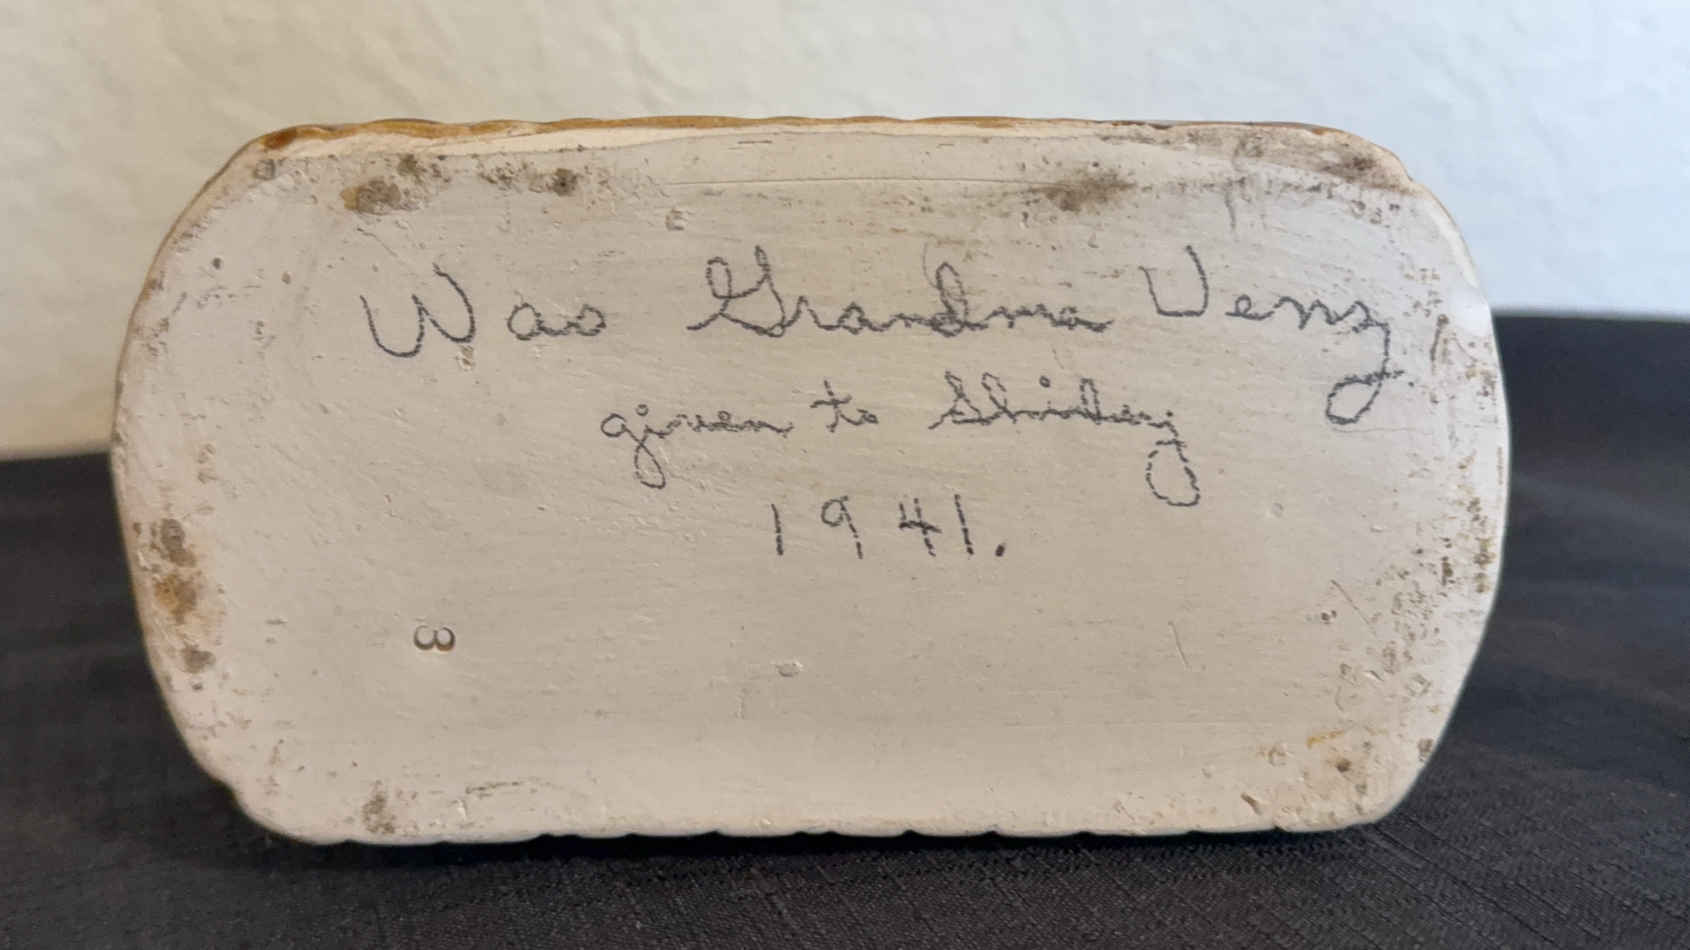 Was Grandma Venz
given to Shirley
1941.
3